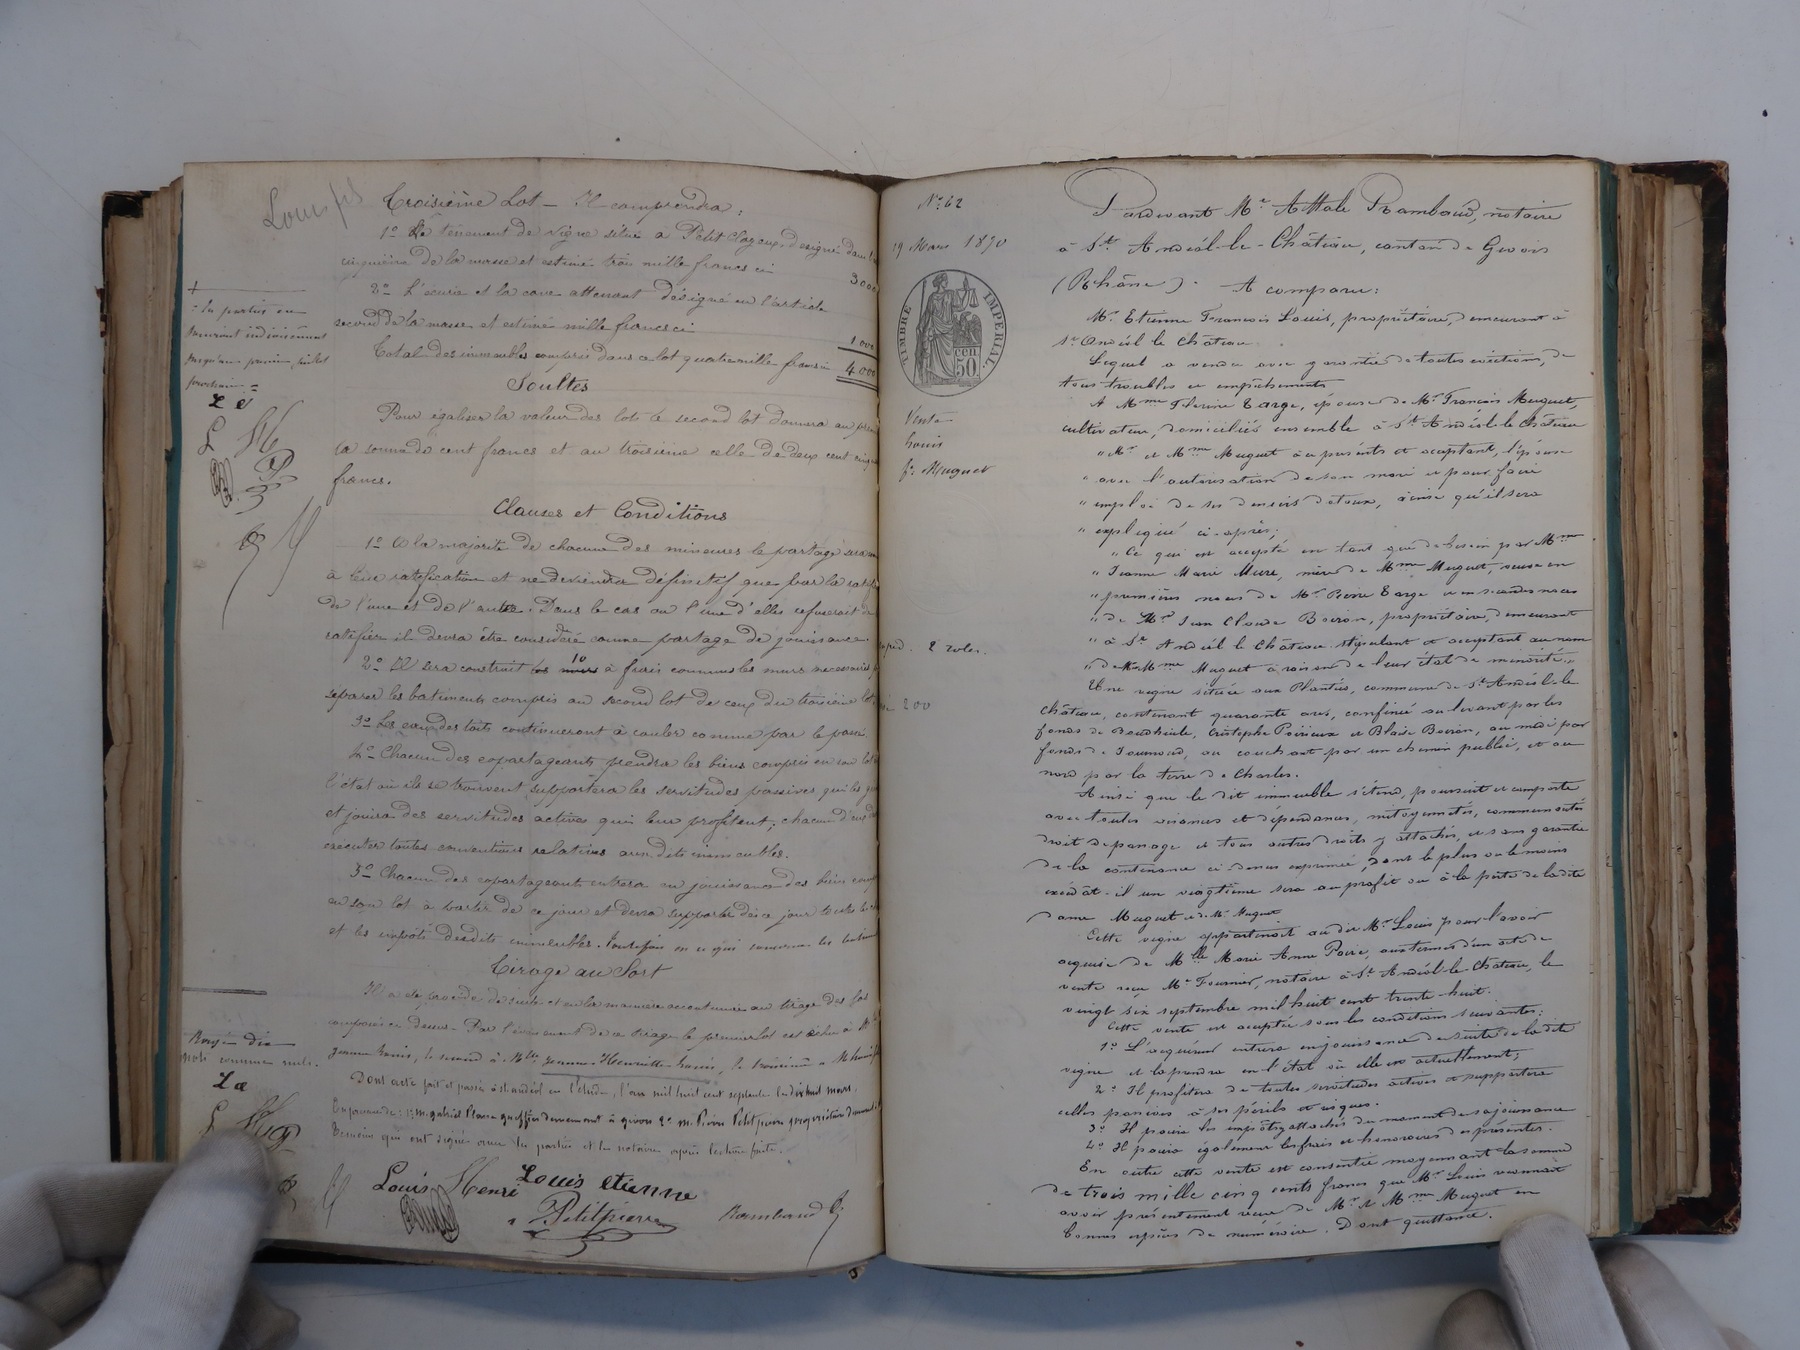 Louis fils
Troisième Lot — Il comprendra :
1º Le tènement de vigne situé à Petit Clazoup, désigné dans l'
cinquième de la masse et estimé trois mille francs ci
3000
2º L'écurie et la cave attenant désigné en l'article
second de la masse et estimé mille francs ci
1000
Total des immeubles compris dans ce lot quatre mille francs ci
4.000
Soultes
Pour égaliser la valeur des lots le second lot donnera au prem
la somme de cent francs et au troisième celle de deux cent cinq
francs.
Clauses et Conditions
1º A la majorité de chacune des mineures le partage sera
à leur ratification et ne deviendra définitif que par la ratif
de l'une et de l'autre. Dans le cas où l'une d'elles refuserait de
ratifier il devra être considéré comme partage de jouissance.
2º Il sera construit à frais communs les murs nécessaires p
séparer les batiments compris au second lot de ceux du troisième lot
3º Les eaux des toits continueront à couler comme par le passé
4º Chacun des copartageants prendra les biens compris en son lot
l'état où ils se trouvent supportera les servitudes passives qui les g
et jouira des servitudes actives qui leur profitent ; chacun d'eux
exécuter toutes conventions relatives aux dits immeubles.
5º Chacun des copartageants entrera en jouissance des biens comp
en son lot à partir de ce jour et devra supporter dès ce jour toutes les
et les impôts desdits immeubles. Toutefois en ce qui concerne les batim
Tirage au Sort
Il a été procédé de suite et en la manière accoutumée au tirage des lots
composés ci dessus — Par l'évènement de ce tirage le premier lot est échu à
Jeanne Louis, le second à Mlle Jeanne Henriette Louis, le troisième à M Louis fils
Dont acte fait et passé à St andéol en l'étude, l'an mil huit cent septante le dix huit mars,
En présence : 1º M. gabriel Plasse greffier demeurant à givors 2º M. Pierre Petitpierre propriétaire demeurant
Témoins qui ont signé avec les parties et le notaire après lecture faite.
Louis Henri
Louis etienne
Petitpierre
Rambaud
+
= les parties en
jouiront indivisément
prochain =
L e
Rayé dix
mots comme nuls.
L e
Nº 62
19 Mars 1870
TIMBRE IMPERIAL.
50 cen.
Vente
Louis
à Muguet
exped. 2 roles.
200
Pardevant Mᵉ Attale Rambaud, notaire
à St. Andéol-le-Château, canton de Givors
(Rhône). A comparu :
Mʳ Etienne François Louis, propriétaire, demeurant à
St Andéol le Château
Lequel a vendu avec garantie de toutes évictions, de
tous troubles et empêchements
A Mᵐᵉ Pierrine Targe, épouse de Mʳ François Muguet,
cultivateur, domiciliés ensemble à St Andéol-le-Château
" Mʳ et Mᵐᵉ Muguet à ce présents et acceptant, l'épouse
" avec l'autorisation de son mari et pour faire
" emploi de ses deniers dotaux, ainsi qu'il sera
" expliqué ci-après ;
" Ce qui est accepté en tant que de besoin par Mᵐᵉ
" Jeanne Marie Mure, mère de Mᵐᵉ Muguet, veuve en
" premières noces de Mʳ Pierre Targe et en secondes noces
" de Mʳ Jean Claude Boiron, propriétaire, demeurant
" à St Andéol le Château stipulant et acceptant au nom
" de M. Mᵐᵉ Muguet à raison de leur état de minorité. "
Une vigne située aux Plantées, commune de St Andéol-le
Château, contenant quarante ares, confinée au levant par les
fonds de Boudhiule, Cristophe Poirieux et Blaise Boiron, au midi par
fonds de Journoud, au couchant par un chemin public, et au
nord par la terre de Charles.
Ainsi que le dit immeuble s'étend, poursuit et comporte
avec toutes aisances et dépendances, mitoyennetés, communautés
droit de passage et tous autres droits y attachés, et sans garantie
de la contenance ci-dessus exprimée, dont le plus ou le moins
excédât-il un vingtième sera au profit ou à la perte de la dite
dame Muguet et de Mʳ Muguet
Cette vigne appartenait au dit Mʳ Louis pour l'avoir
acquise de Mˡˡᵉ Marie Anne Poire, aux termes d'un acte de
vente reçu Mᵉ Fournier, notaire à St Andéol-le-Château, le
vingt six septembre mil huit cent trente-huit.
Cette vente est acceptée sous les conditions suivantes :
1º L'acquéreur entrera en jouissance de suite de la dite
vigne et la prendra en l'état où elle est actuellement ;
2º Il profitera de toutes servitudes actives et supportera
celles passives à ses périls et risques.
3º Il paiera les impôts y attachés du moment de sa jouissance
4º Il paiera également les frais et honoraires des présentes.
En outre cette vente est consentie moyennant la somme
de trois mille cinq cents francs que Mʳ Louis reconnait
avoir présentement reçue de Mʳ et Mᵐᵉ Muguet en
bonnes espèces de numéraire. Dont quittance.